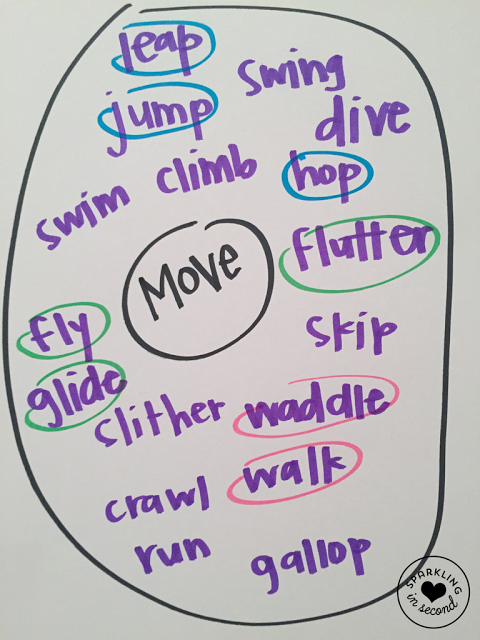 leap
swing
jump
dive
climb
hop
swim
flutter
Move
fly
skip
glide
slither
waddle
walk
crawl
run
gallop
SPARKLING
in second